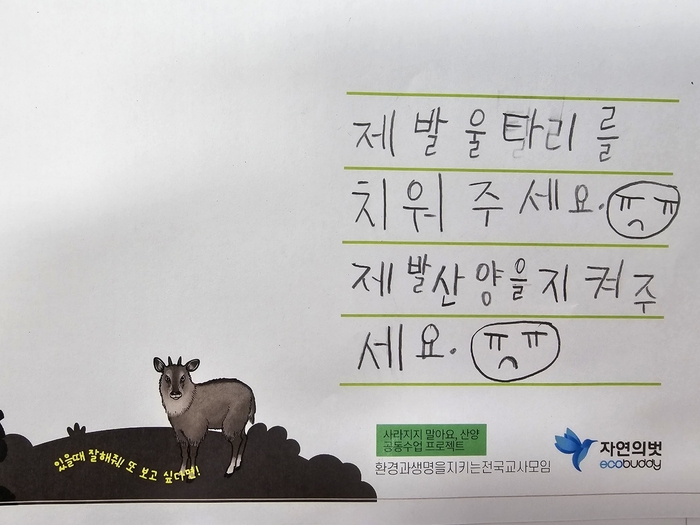 제발 울타리를
치워 주세요. ㅠㅠ
제발산양을지켜주
세요. ㅠㅠ
있을때 잘해줘! 또 보고 싶다면!
사라지지 말아요, 산양
공동수업 프로젝트
환경과생명을지키는전국교사모임
자연의벗
ecobuddy